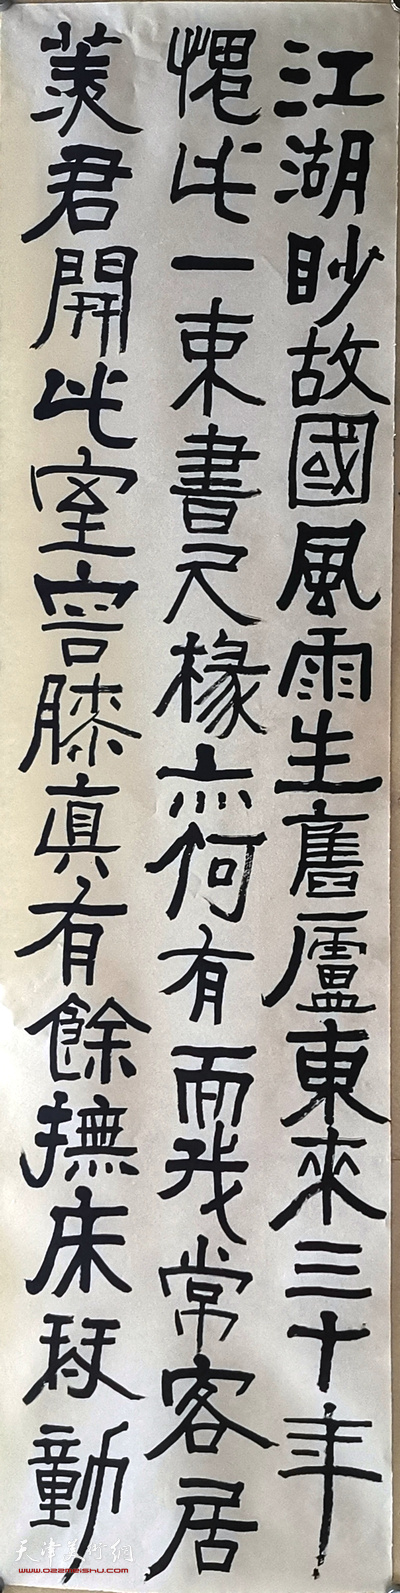 江湖眇故國風雨生舊廬東來三十年
愧此一束書尺椽亦何有而我常客居
羨君開此室容膝真有餘撫床琴動
天津美術網
www.022meishu.com